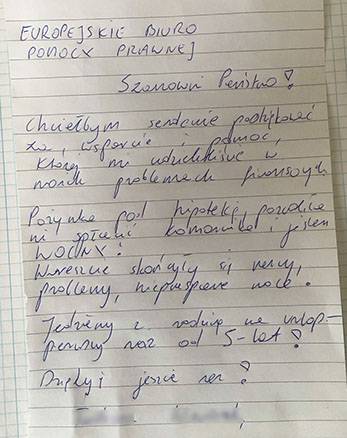 EUROPEJSKIE BIURO
POMOCY PRAWNEJ
Szanowni Państwo!
Chciałbym serdecznie podziękować
za, wsparcie i pomoc,
której mi udzieliliście w
moich problemach finansowych
Pożyczka pod hipotekę, pozwoliła
mi spłacić komornika, jestem
WOLNY!
Wreszcie skończyły się nerwy,
problemy, nieprzespane noce!
Jedziemy z rodziną na urlop-
pierwszy raz od 5-lat!
Dziękuję jeszcze raz!